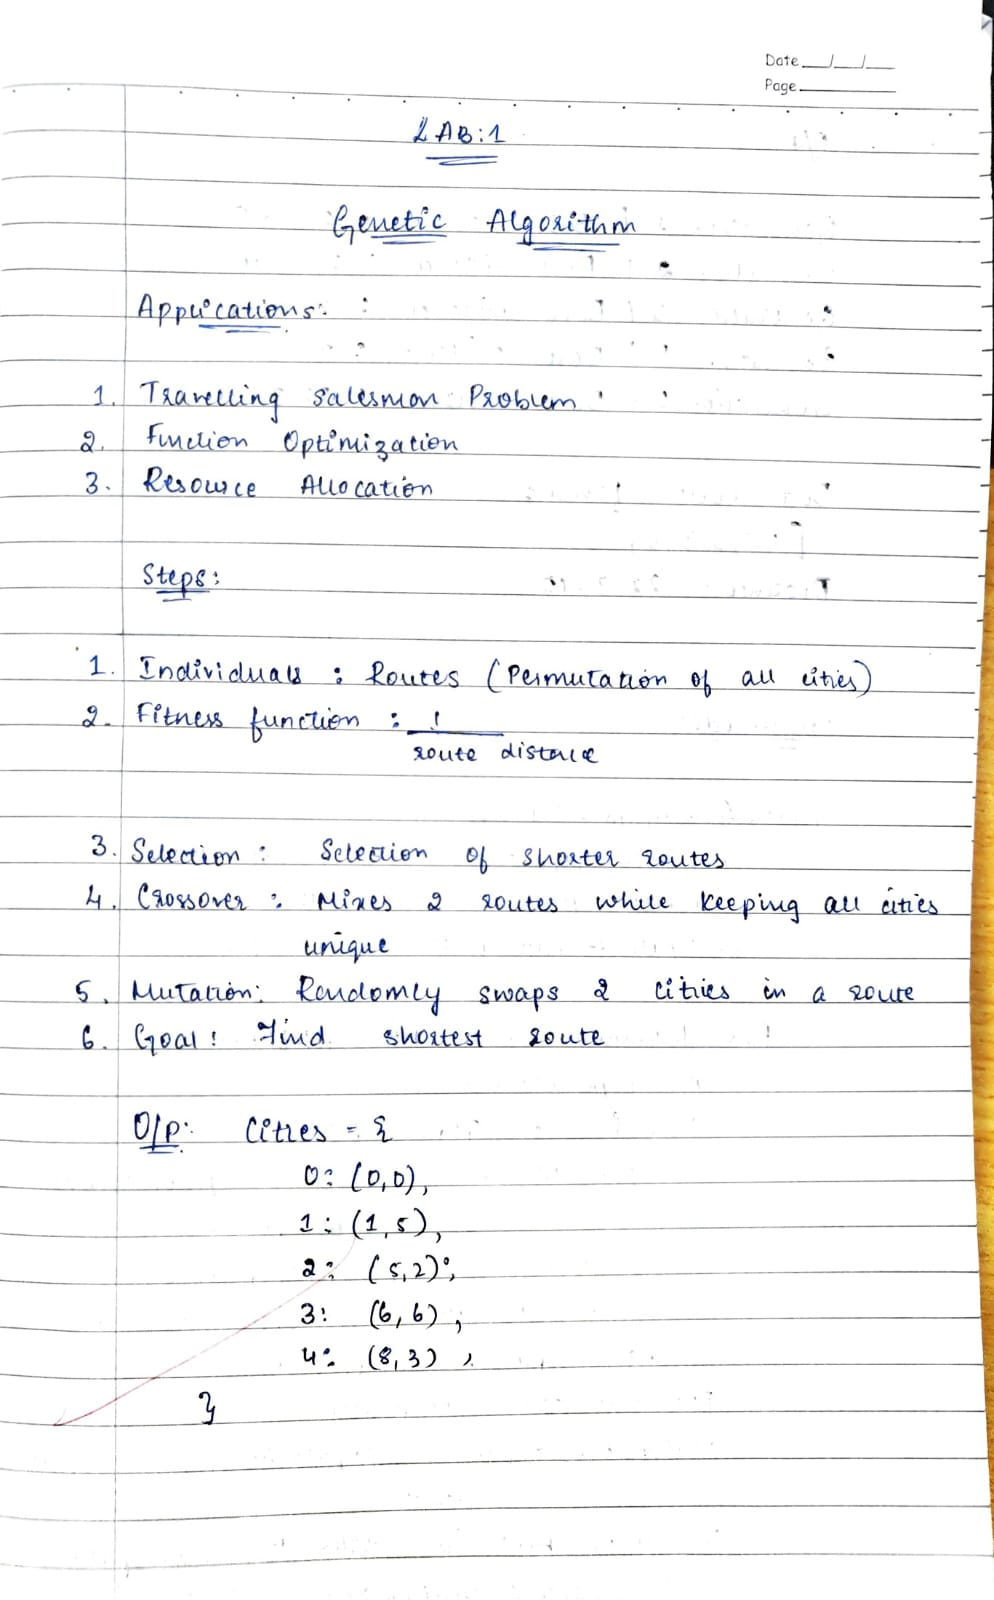 Date __/__/__
Page ______
LAB:1
Genetic Algorithm
Applications:
1. Travelling Salesman Problem
2. Function Optimization
3. Resource Allocation
Steps:
1. Individuals : Routes (Permutation of all cities)
2. Fitness function : 1
route distance
3. Selection : Selection of shorter routes
4. Crossover : Mixes 2 routes while keeping all cities
unique
5. Mutation: Randomly swaps 2 cities in a route
6. Goal: Find shortest route
O/P: Cities = {
0: (0,0),
1: (1,5),
2: (5,2),
3: (6,6),
4: (8,3),
}